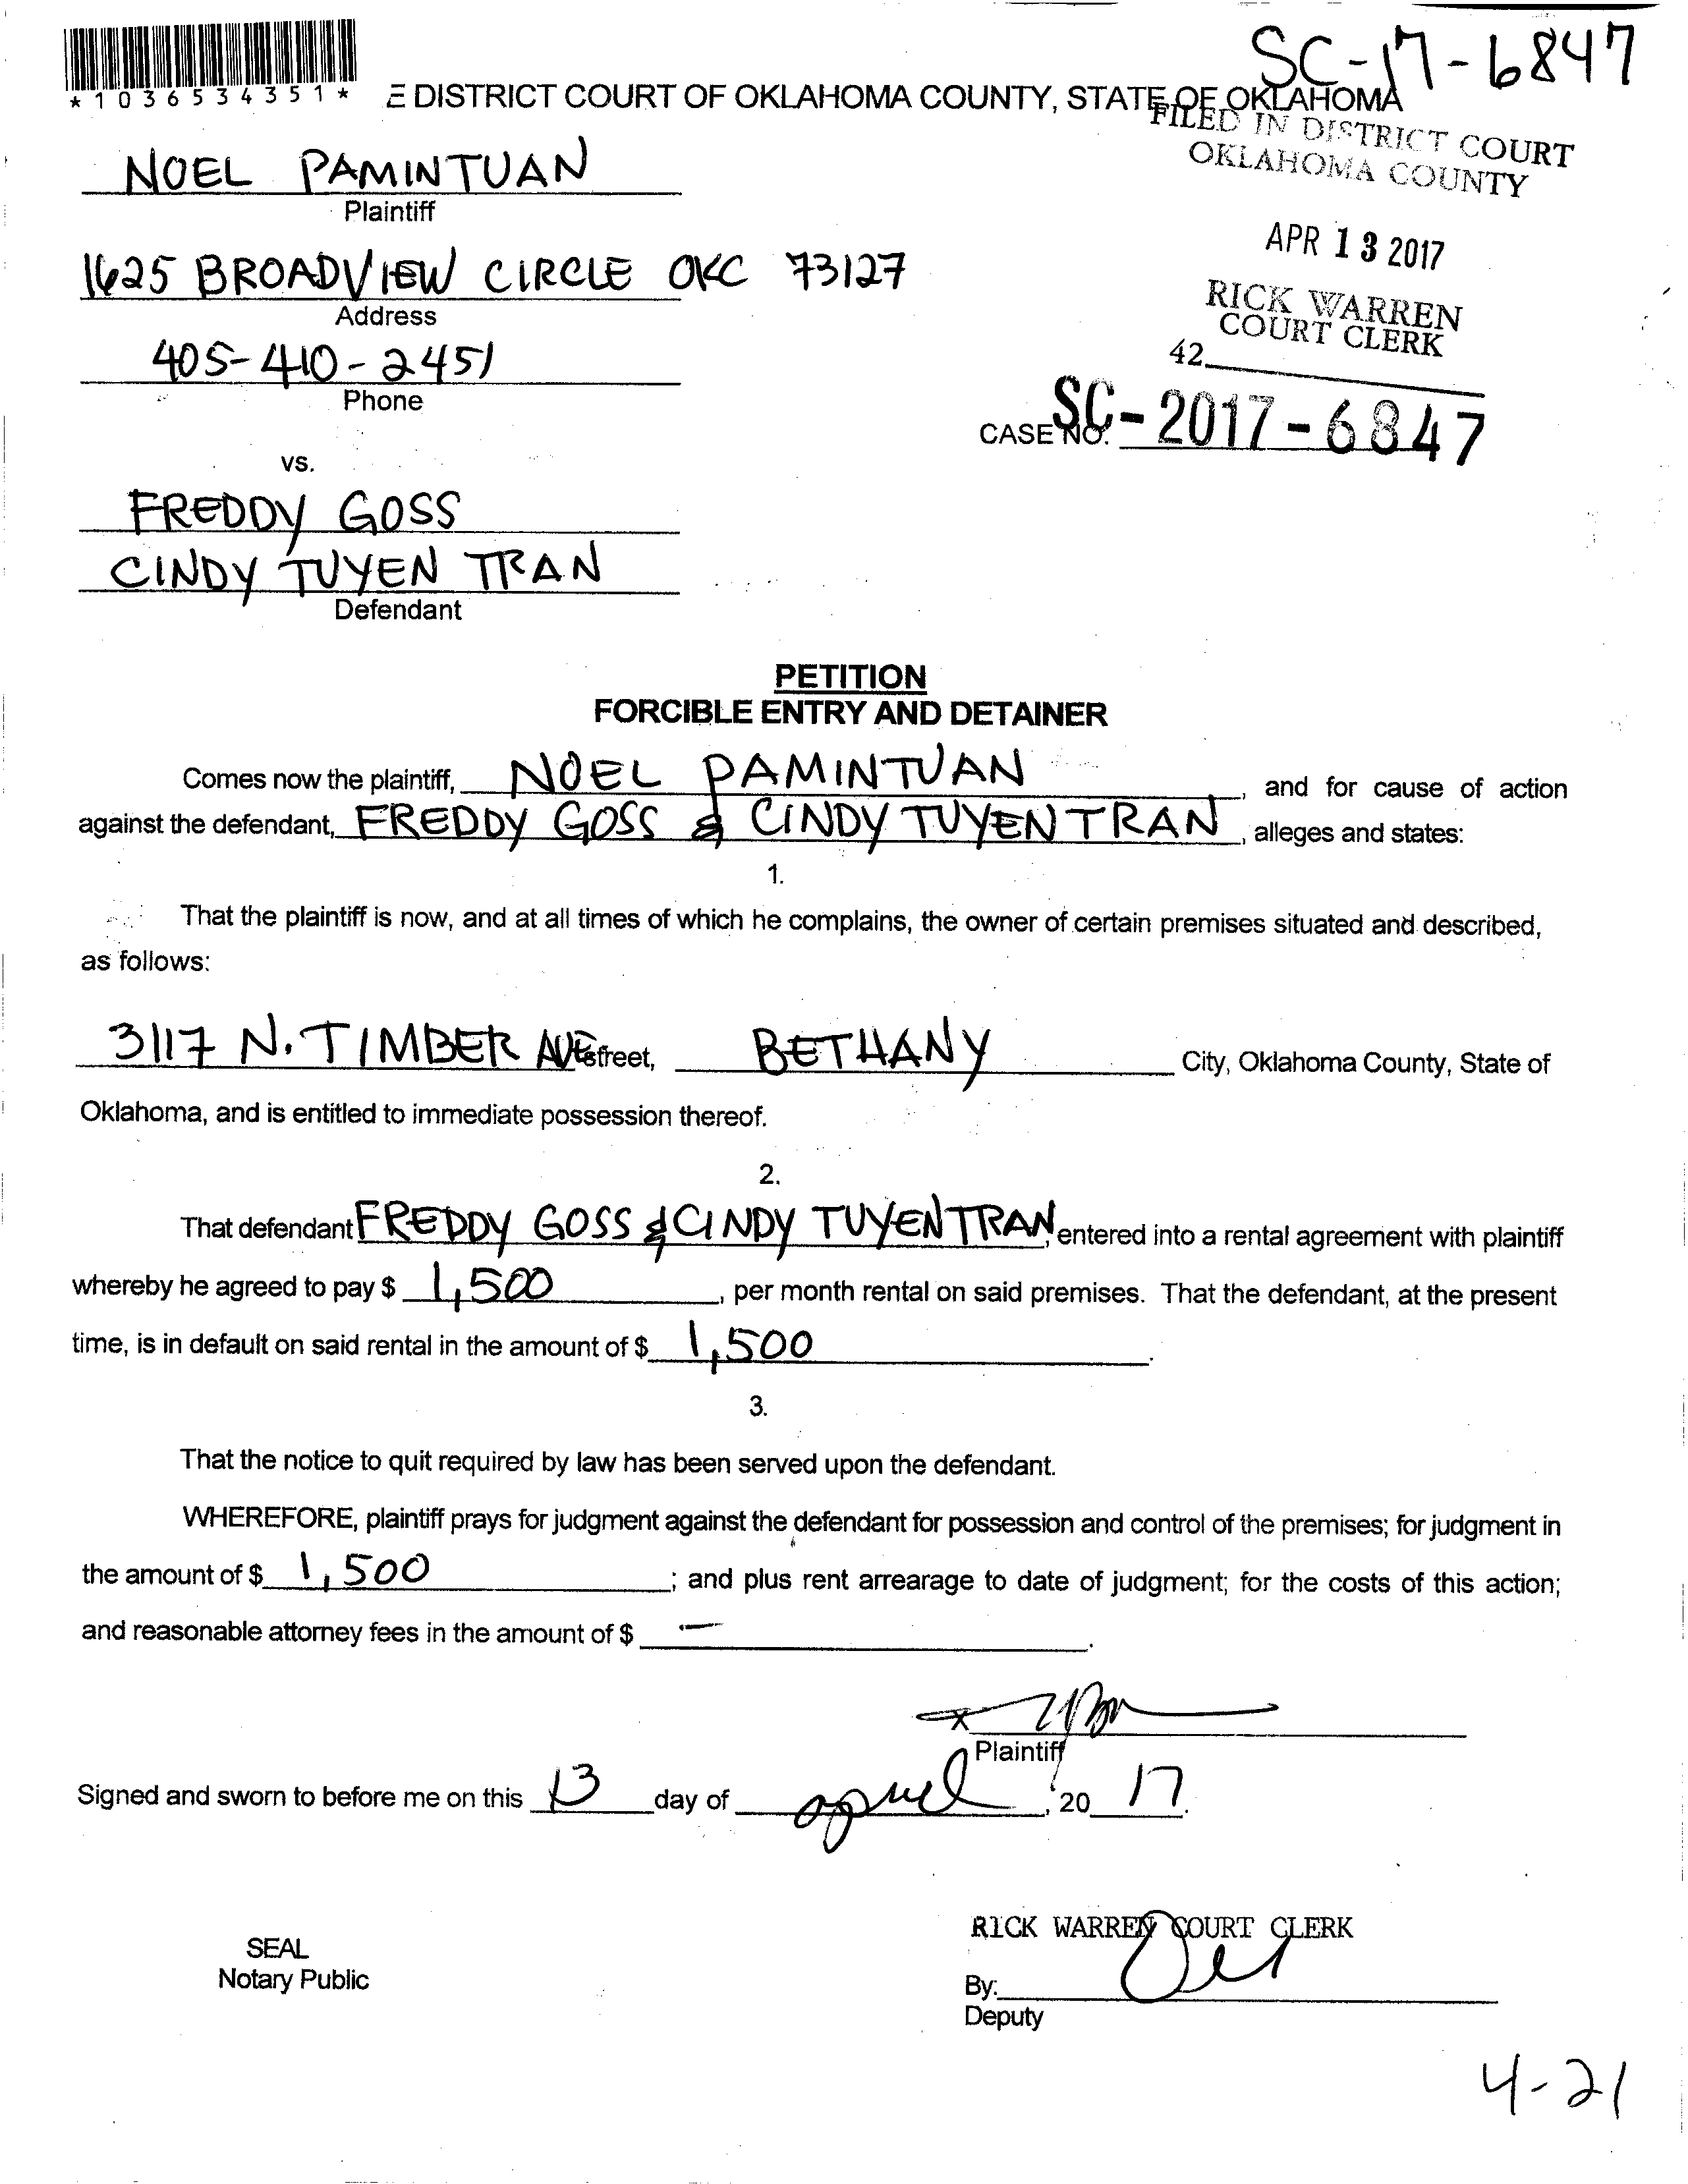 SC-17-6847
*1036534351*
E DISTRICT COURT OF OKLAHOMA COUNTY, STATE OF OKLAHOMA
FILED IN DISTRICT COURT
OKLAHOMA COUNTY
NOEL PAMINTUAN
Plaintiff
APR 13 2017
1625 BROADVIEW CIRCLE OKC 73127
Address
RICK WARREN
COURT CLERK
42
405-410-2451
Phone
CASE NO. SC-2017-6847
vs.
FREDDY GOSS
CINDY TUYEN TRAN
Defendant
PETITION
FORCIBLE ENTRY AND DETAINER
Comes now the plaintiff, NOEL PAMINTUAN, and for cause of action
against the defendant, FREDDY GOSS & CINDY TUYEN TRAN, alleges and states:
1.
That the plaintiff is now, and at all times of which he complains, the owner of certain premises situated and described,
as follows:
3117 N. TIMBER AVE street, BETHANY City, Oklahoma County, State of
Oklahoma, and is entitled to immediate possession thereof.
2.
That defendant FREDDY GOSS & CINDY TUYEN TRAN, entered into a rental agreement with plaintiff
whereby he agreed to pay $ 1,500, per month rental on said premises. That the defendant, at the present
time, is in default on said rental in the amount of $ 1,500.
3.
That the notice to quit required by law has been served upon the defendant.
WHEREFORE, plaintiff prays for judgment against the defendant for possession and control of the premises; for judgment in
the amount of $ 1,500; and plus rent arrearage to date of judgment; for the costs of this action;
and reasonable attorney fees in the amount of $ —.
x
Plaintiff
Signed and sworn to before me on this 13 day of april, 20 17.
RICK WARREN COURT CLERK
SEAL
Notary Public
By:
Deputy
4-21